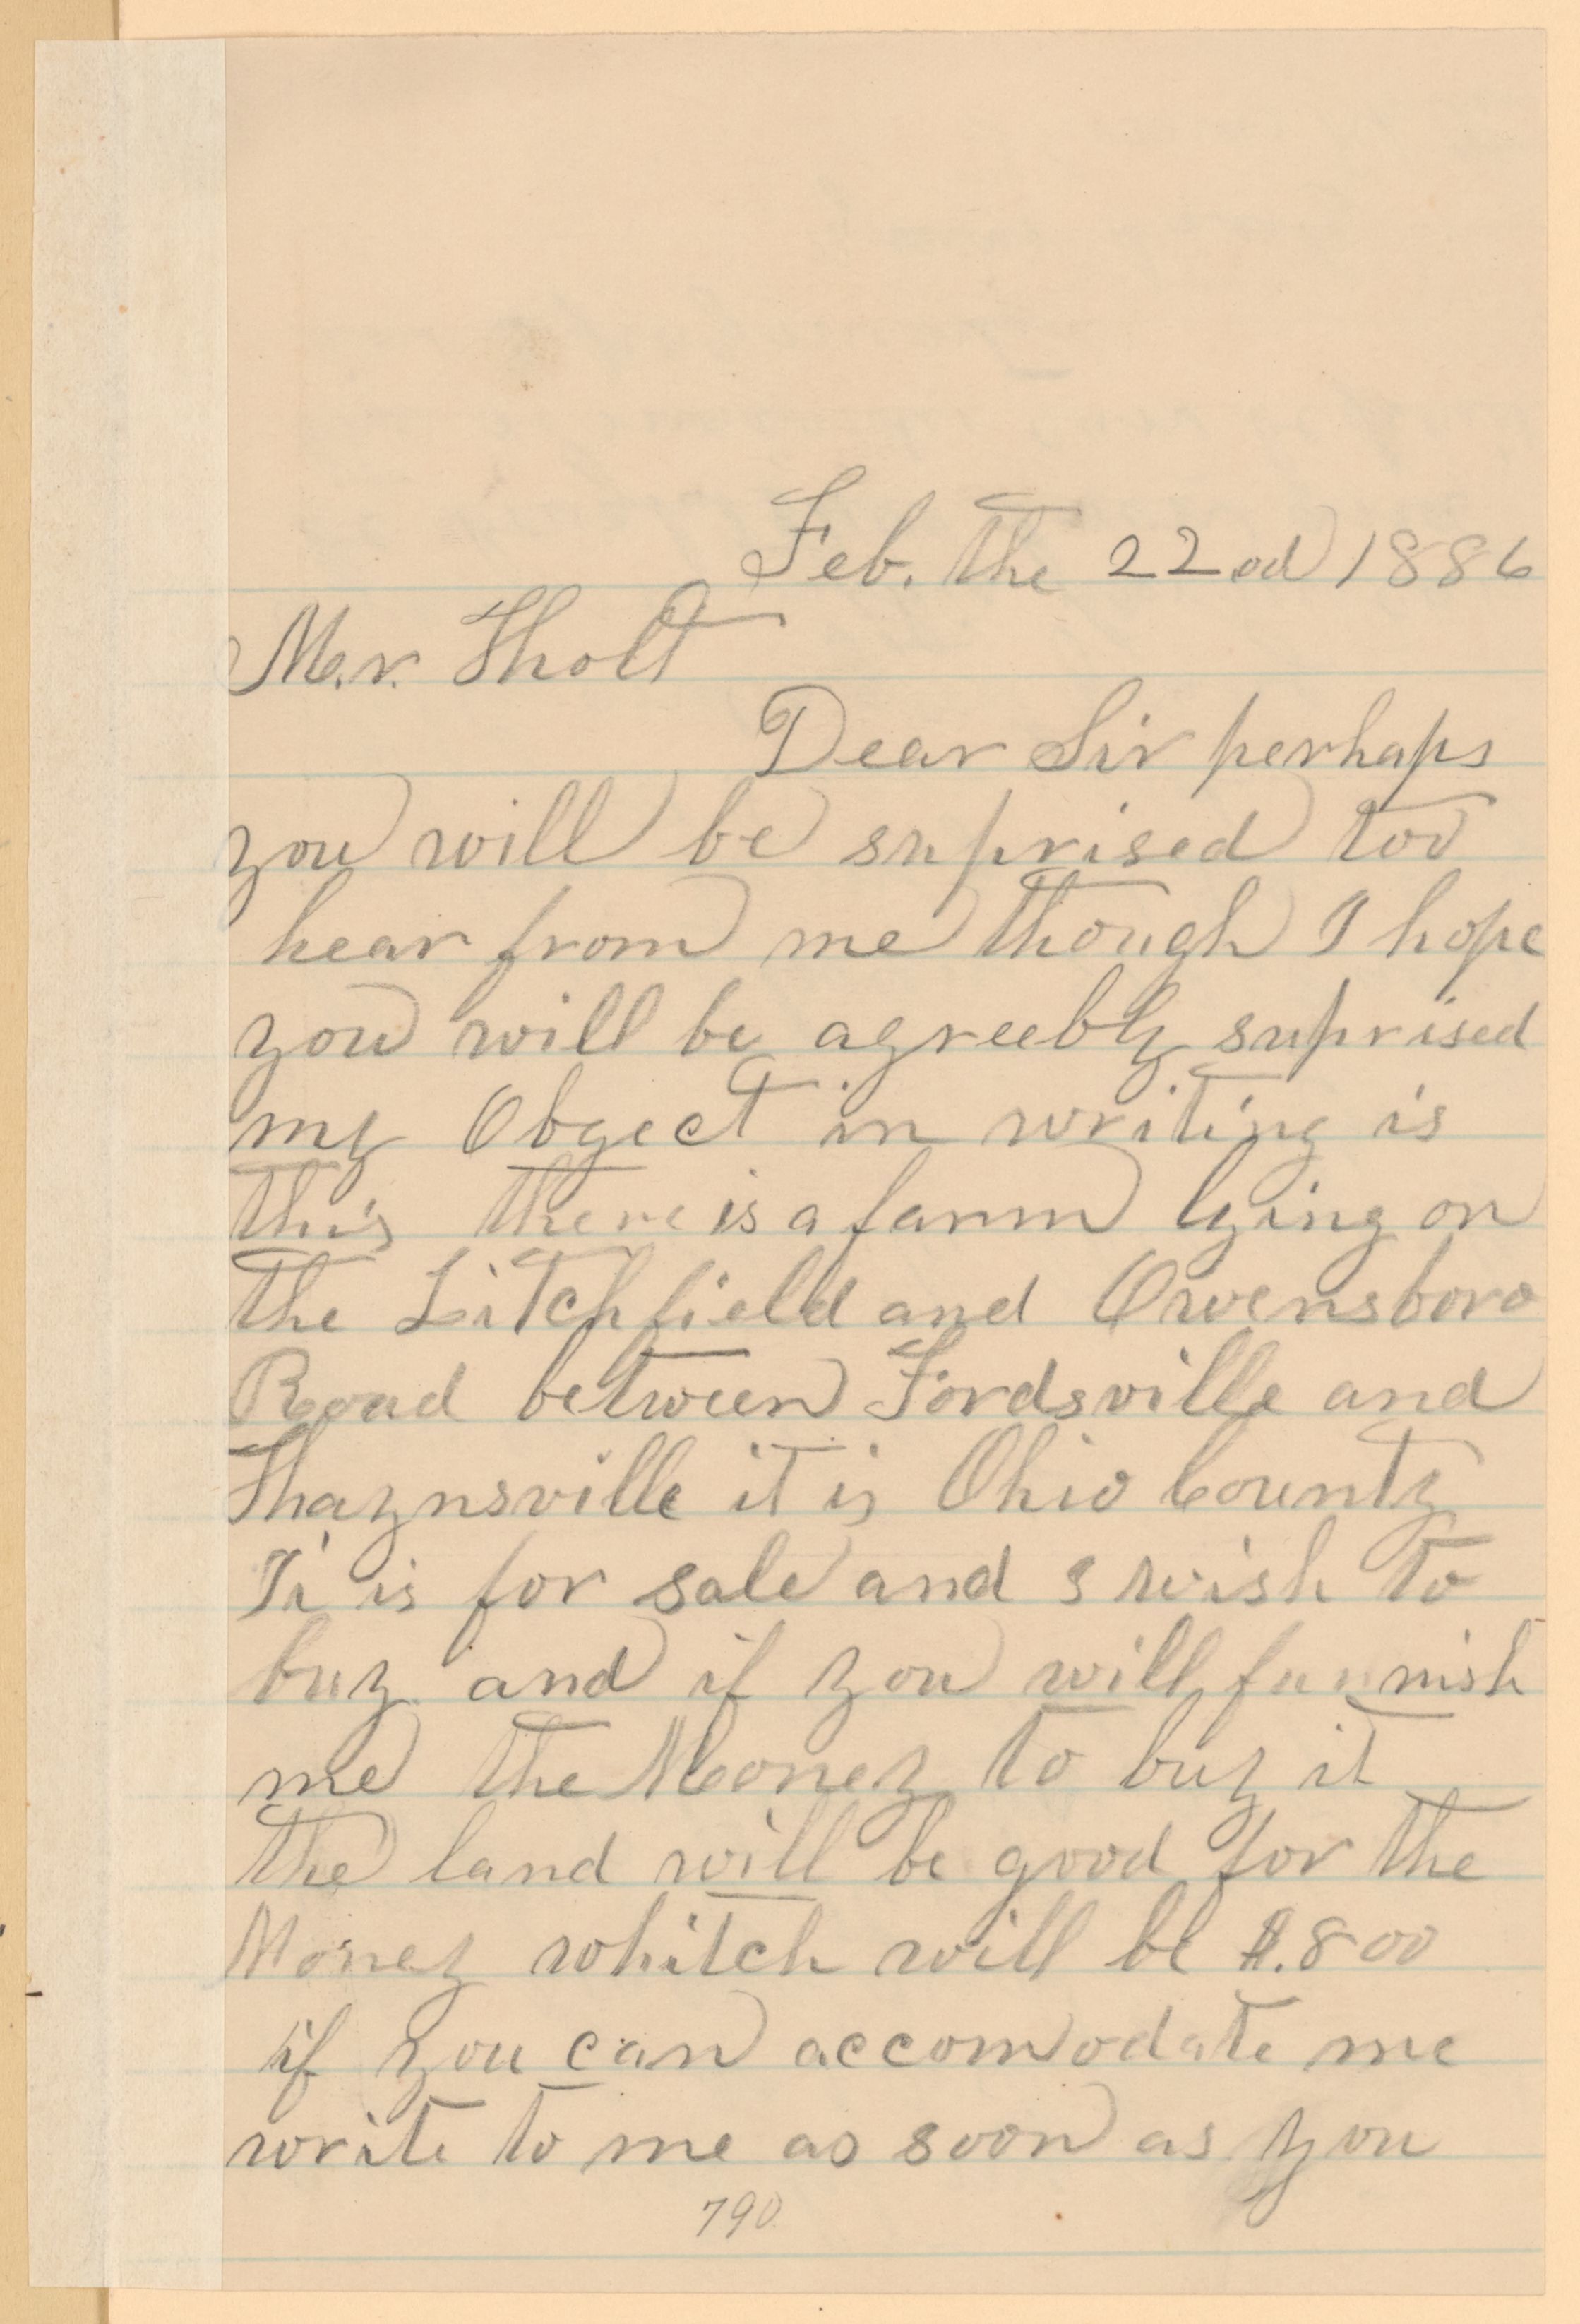 Feb. the 22ed 1886
M.r. Holt
Dear Sir perhaps
you will be suprised too
hear from me though I hope
you will be agreebly suprised
my Obgect in writing is
this there is a farm lying on
the Litchfield and Owensboro
Road between Fordsville and
Haynsville it is Ohio County
It is for sale and I wish to
buy and if you will furnish
me the Money to buy it
the land will be good for the
Money whitch will be $.800
if you can accomodate me
write to me as soon as you
790